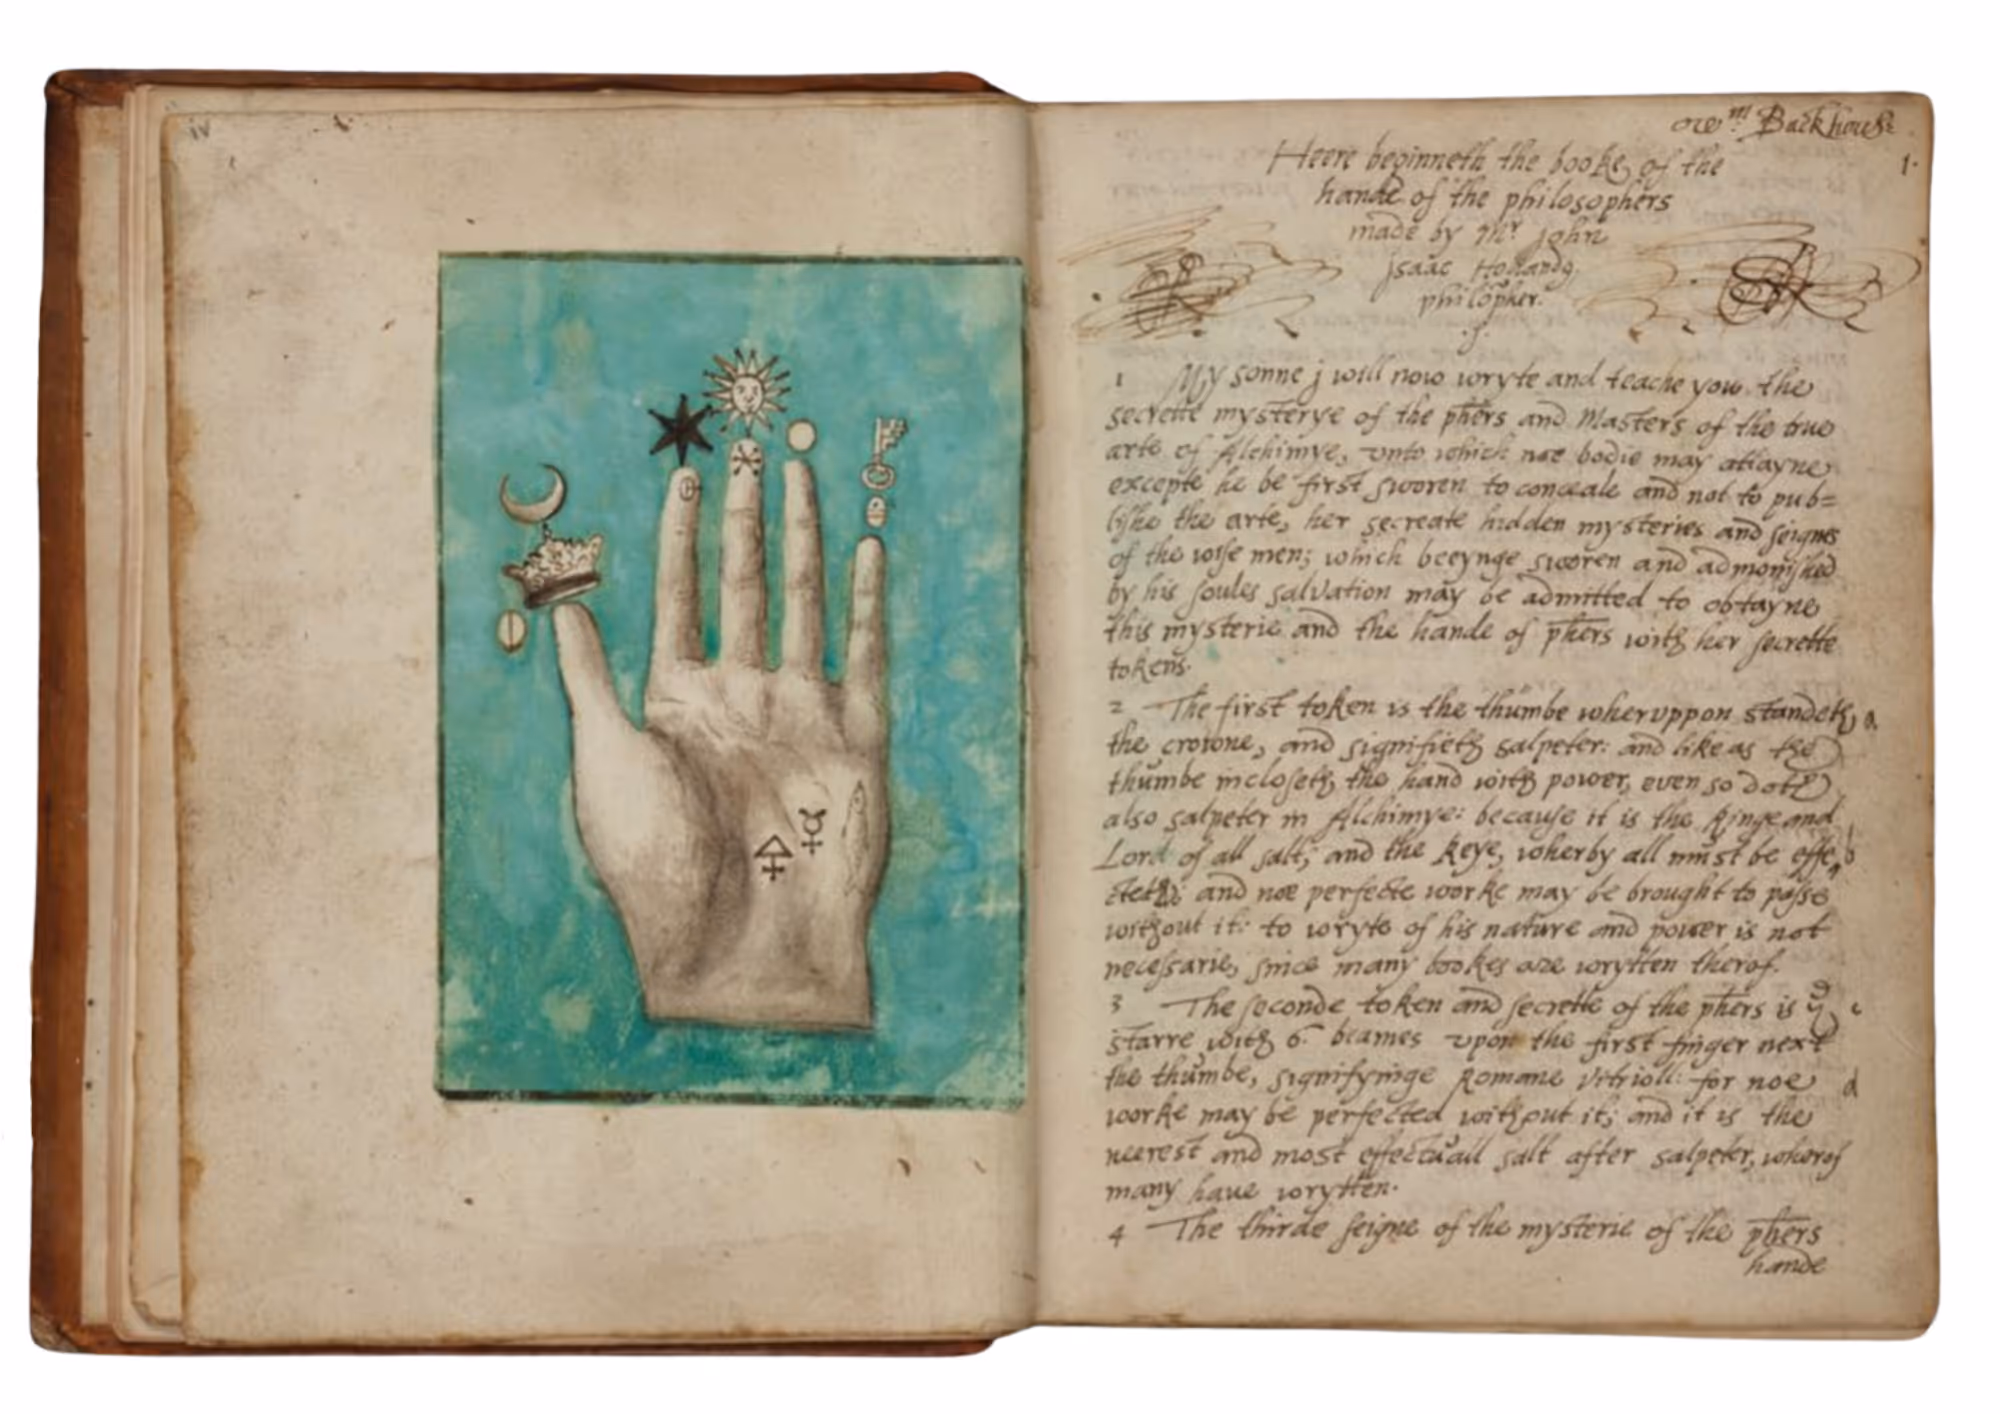 iv
Wm Backhouse
1.
Heere beginneth the booke of the
hande of the philosophers
made by Mr John
Isaac Holland9
philosopher.
1 My sonne j will now wryte and teache you the
secrette mysterye of the phers and Masters of the true
arte of Alchimye, vnto which noe bodie may attayne
excepte he be first sworen to conceale and not to pub=
lishe the arte, her secreate hidden mysteries and seignes
of the wise men; which beeynge sworen and admonished
by his soules salvation may be admitted to obtayne
this mysterie and the hande of phers with her secrette
tokens.
2 The first token is the thumbe wheruppon standeth a.
the crowne, and signifieth salpeter: and like as the
thumbe incloseth the hand with power, even so doth
also salpeter in Alchimye: because it is the Kinge and
Lord of all salt; and the Keye, wherby all must be effe b
cteth; and noe perfecte worke may be brought to passe
without it: to wryte of his nature and power is not
necessarie, since many bookes are wrytten therof.
3 The seconde token and secrette of the phers is ye c
starre with 6. beames vpon the first finger next
the thumbe, signifyinge Romane Vitrioll: for noe d
worke may be perfected without it; and it is the
neerest and most effectuall salt after salpeter, wherof
many haue wrytten.
4 The thirde seigne of the mysterie of the phers
hande